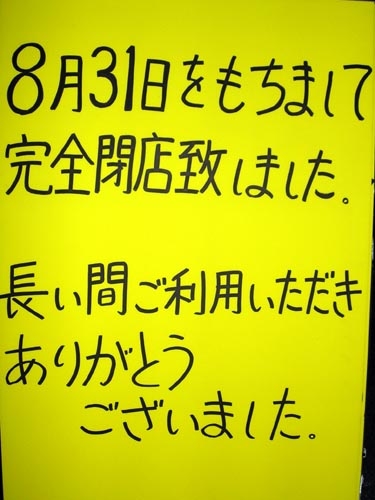 8月31日をもちまして
完全閉店致しました。
長い間ご利用いただき
ありがとう
ございました。